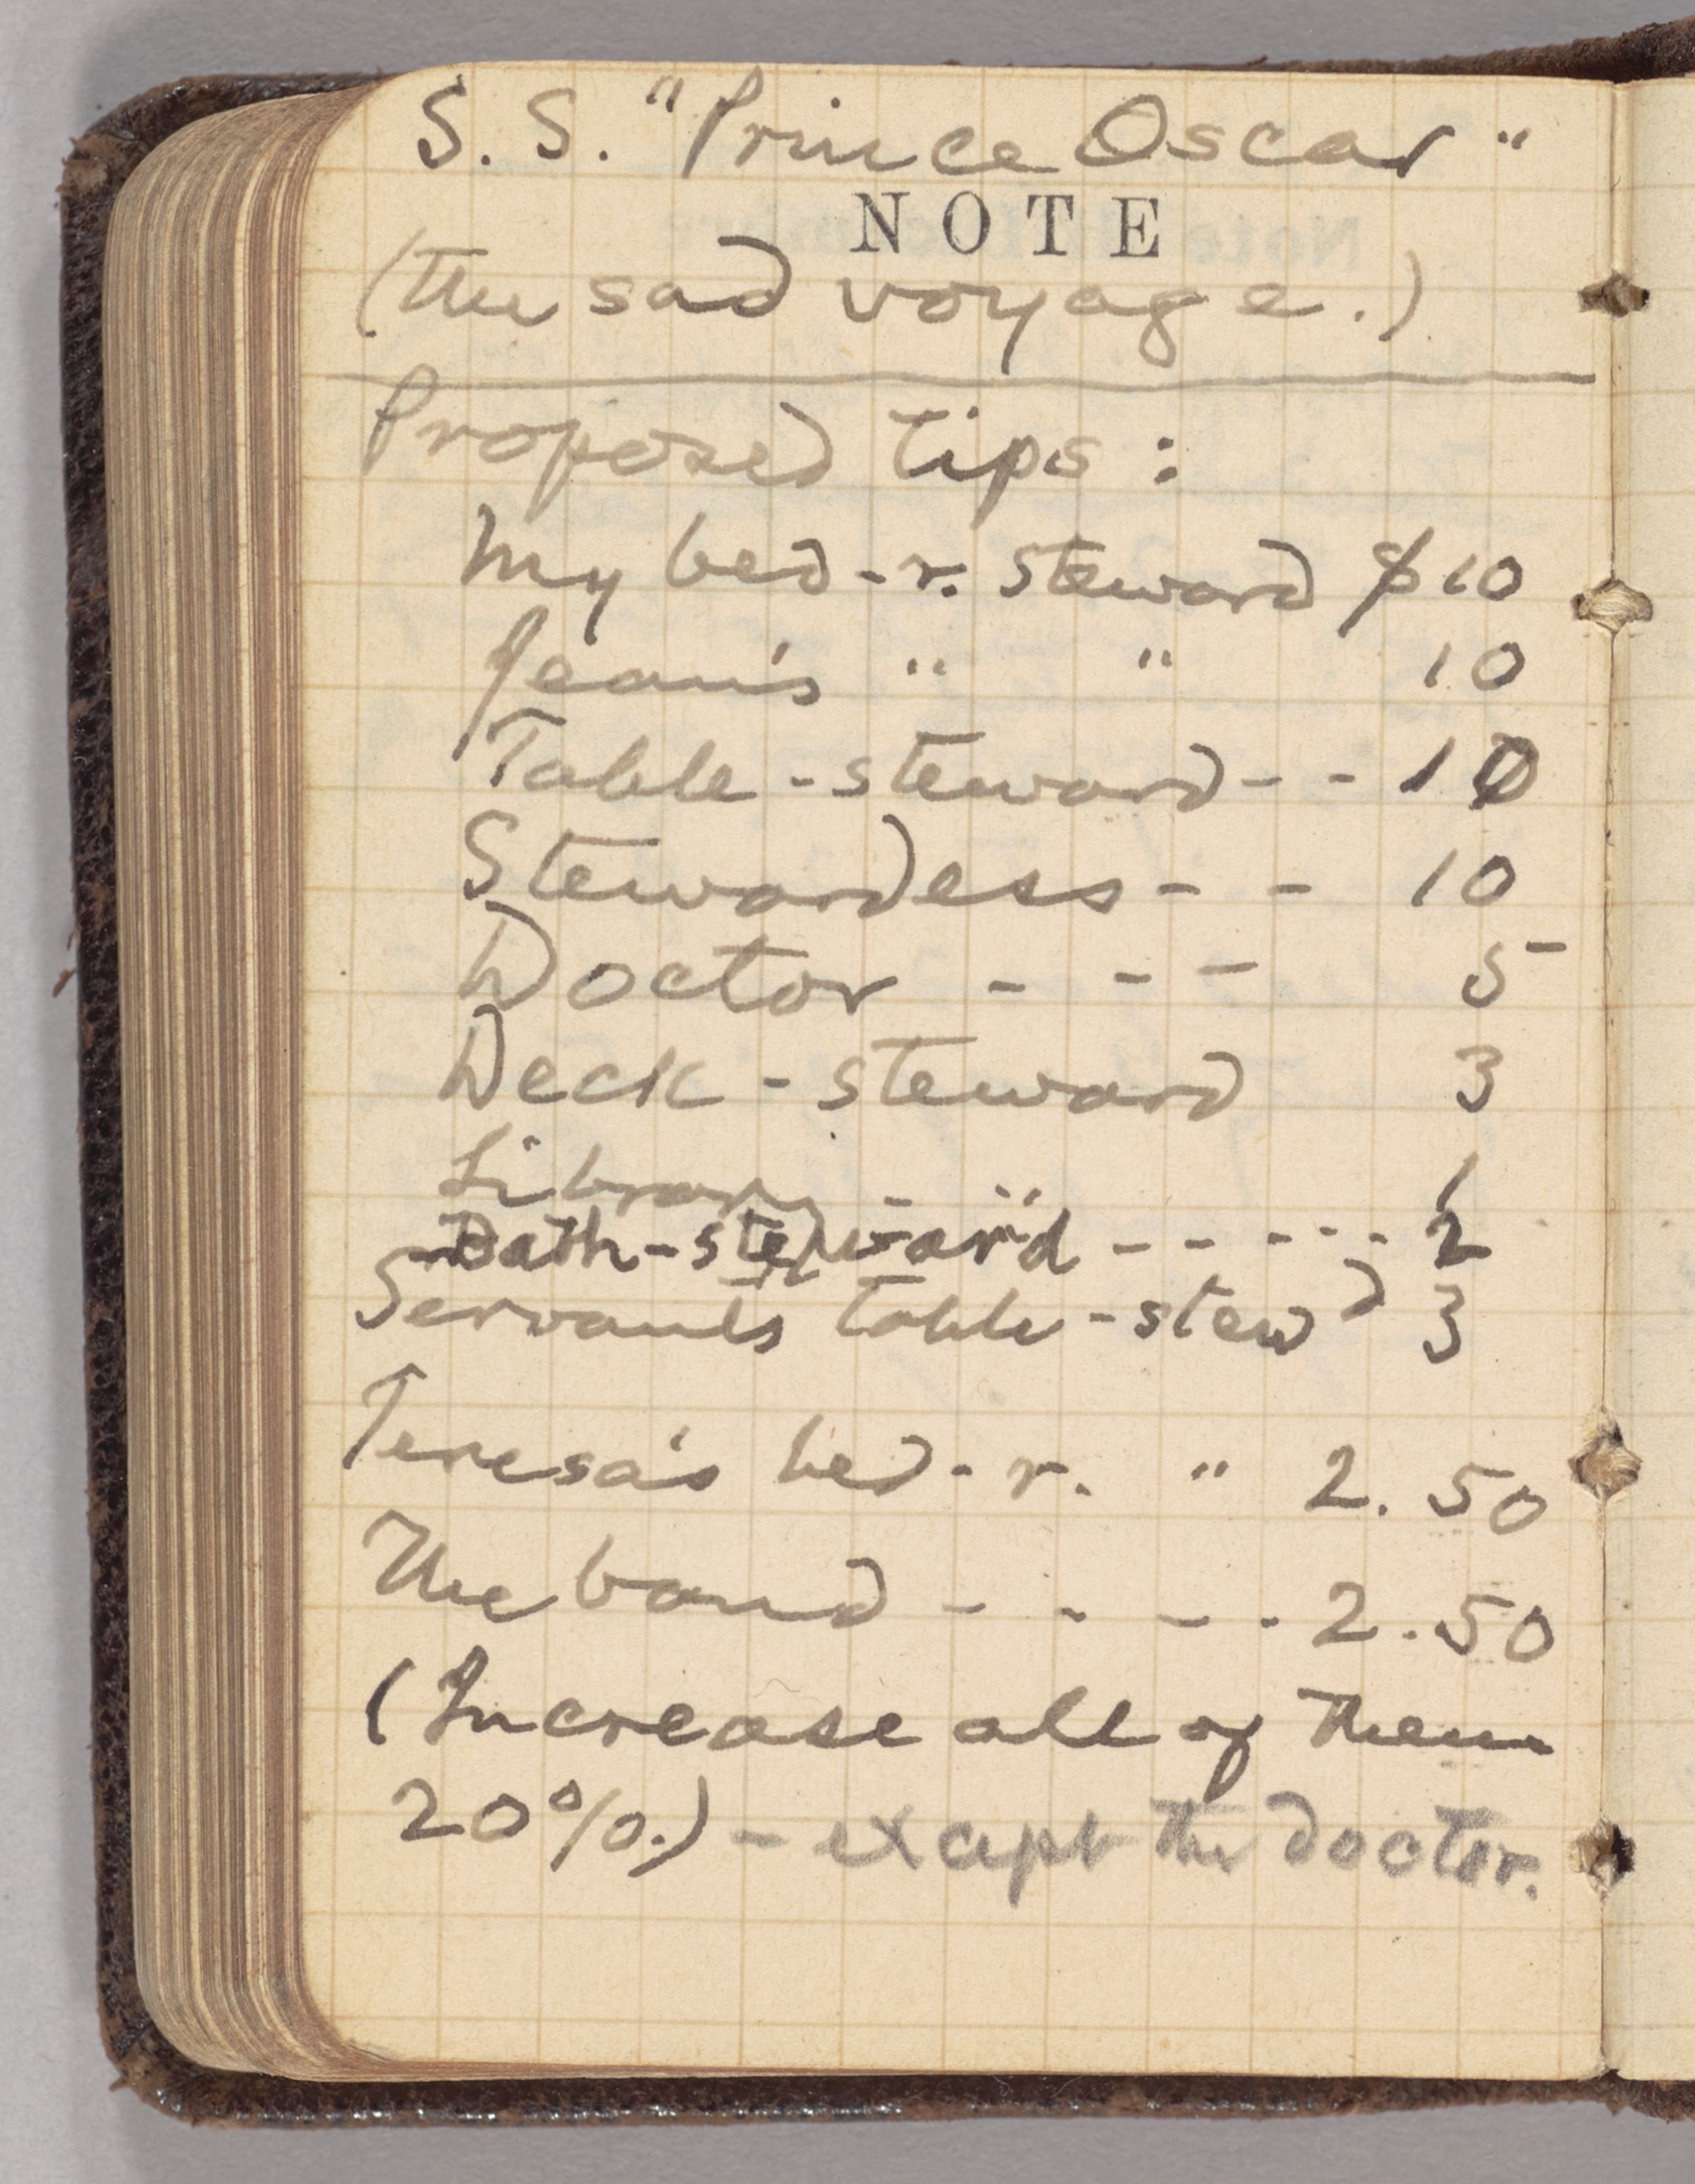 S. S. "Prince Oscar"
NOTE
(the sad voyage.)
Proposed tips:
My bed-r. steward $10
Jean's " " 10
Table-steward - - 10
Stewardess - - 10
Doctor - - - 5
Deck-steward 3
Library - " 1
Bath-steward - - - - - 2
Servants table-stewd 3
Teresa's bed-r. " 2.50
The band - - - - 2.50
(Increase all of them
20%.) - except the doctor.